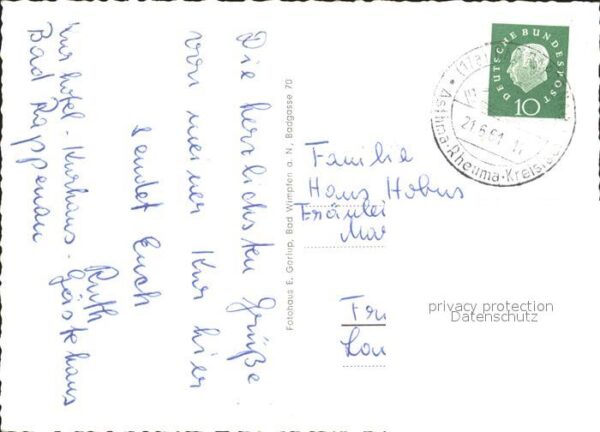 Die herzlichsten Grüße
von meiner Kur hier
sendet Euch
Ruth
Kurhotel - Kurhaus - Gästehaus
Bad Rappenau
Fotohaus E. Gorlup, Bad Wimpfen a. N., Badgasse 70
DEUTSCHE BUNDESPOST
10
(17a)
21.6.61
Asthma-Rheuma-Kreis
Familie
Hans Hobus
Fräulei
Mar
Fru
Lou
privacy protection
Datenschutz